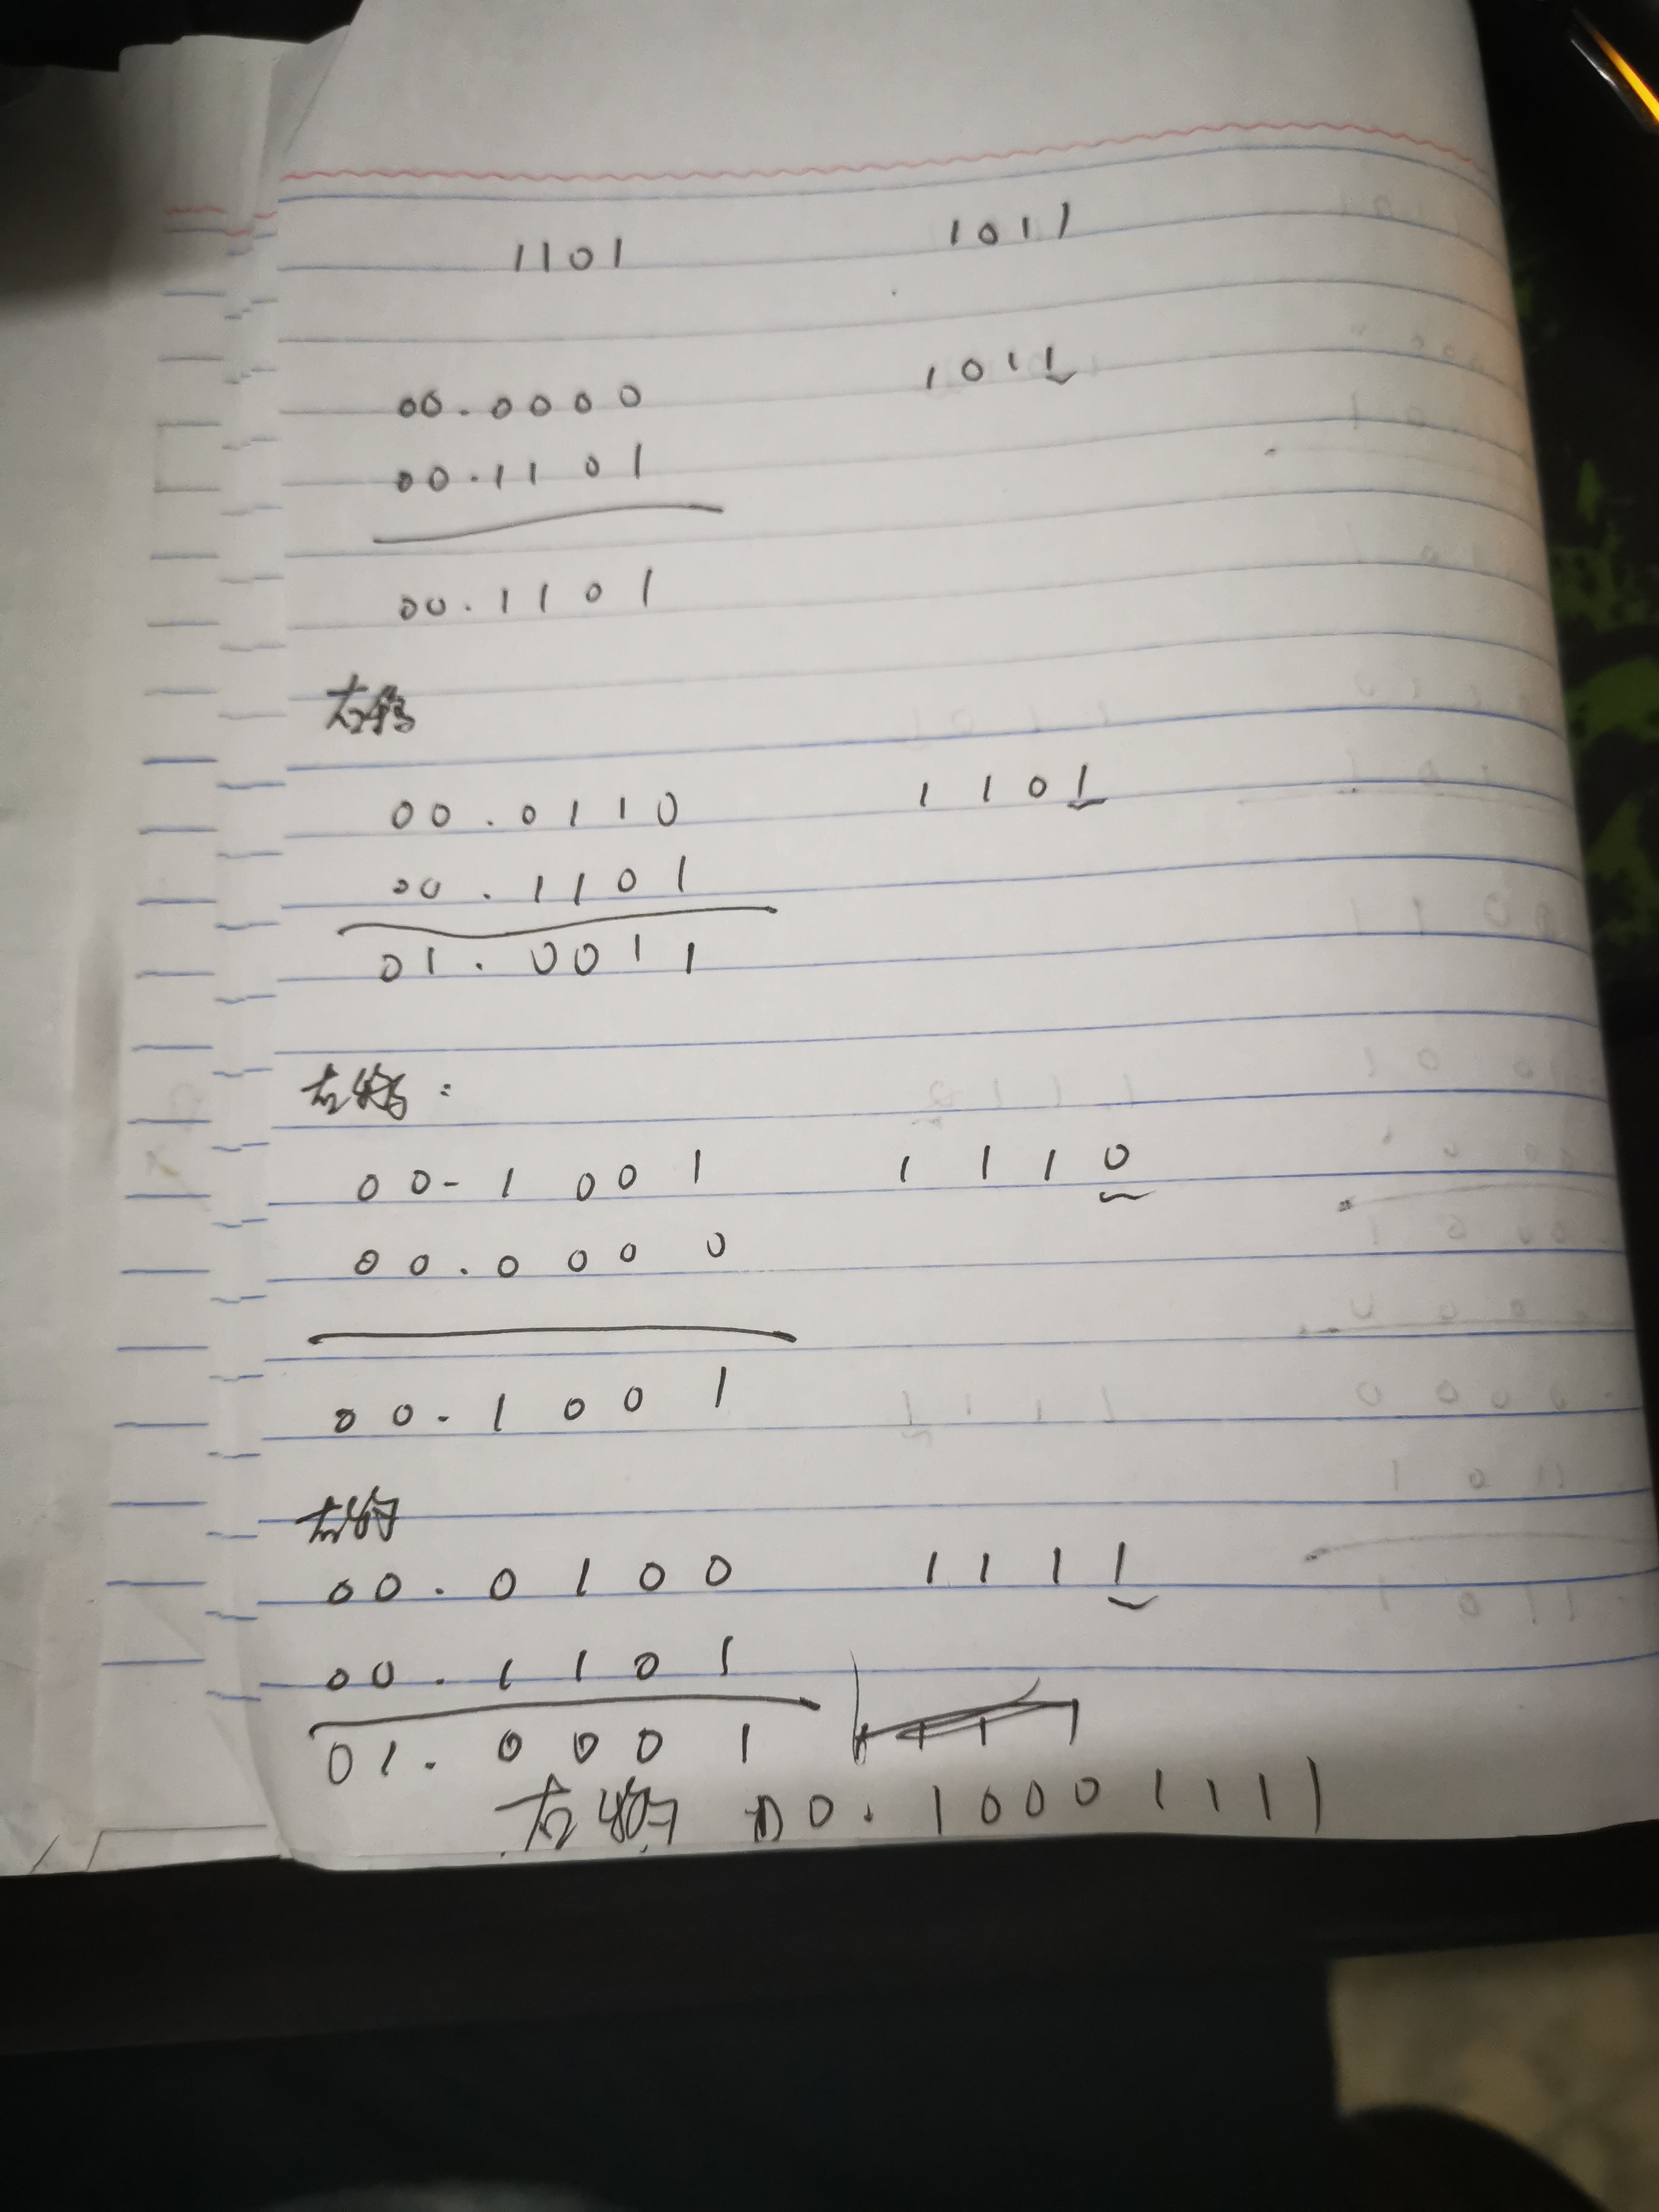 1101 1011
00.0000 1011
00.1101
00.1101
右移
00.0110 1101
00.1101
01.0011
右移:
00.1001 1110
00.0000
00.1001
右移
00.0100 1111
00.1101
01.0001
右移 00.10001111